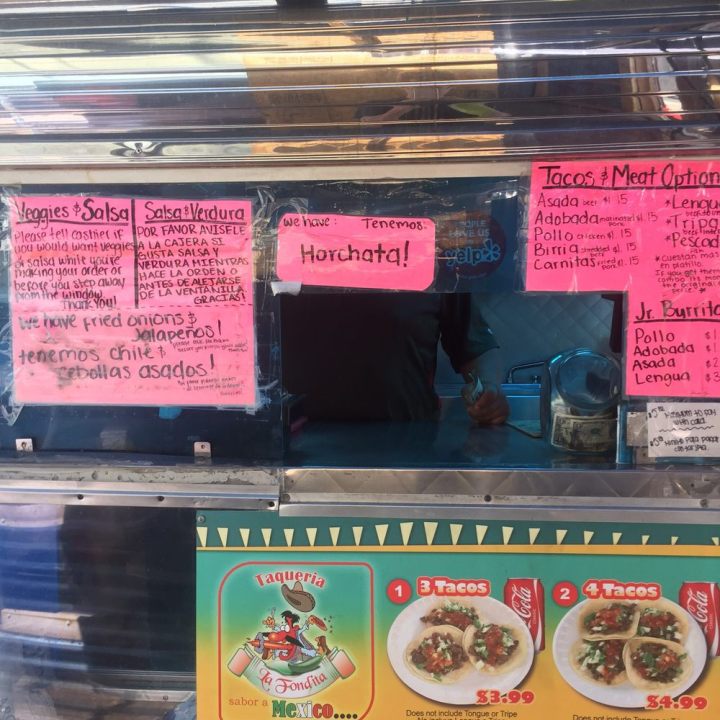 Veggies & Salsa
Please tell cashier if
you would want veggies
or salsa while you're
making your order or
before you step away
from the window.
Thank you!
Salsa & Verdura
POR FAVOR AVISELE
A LA CAJERA SI
GUSTA SALSA Y
VERDURA MIENTRAS
HACE LA ORDEN O
ANTES DE ALETARSE
DE LA VENTANILLA
GRACIAS!
we have fried onions &
Jalapeños!
tenemos chile &
cebollas asados!
we have: Tenemos:
Horchata!
PEOPLE
LOVE US
yelp
Tacos & Meat Option
Asada beef $1.15
Adobada marinated $1.15
pork
Pollo chicken $1.15
Birria shredded $1.15
beef
Carnitas fried $1.15
pork
*Lengu
*Tripa
*Pescad
*Cuestan mas
en platillo.
Jr. Burrito
Pollo $1
Adobada $
Asada $2
Lengua $3
$5.00 Minimum to pay
with card
$5.00 Minimo para pagar
con tarjeta
Taqueria
La Fondita
sabor a
Mexico....
1 3 Tacos
Coca-Cola
$3.99
Does not include Tongue or Tripe
2 4 Tacos
Cola
$4.99
Does not include Tongue or